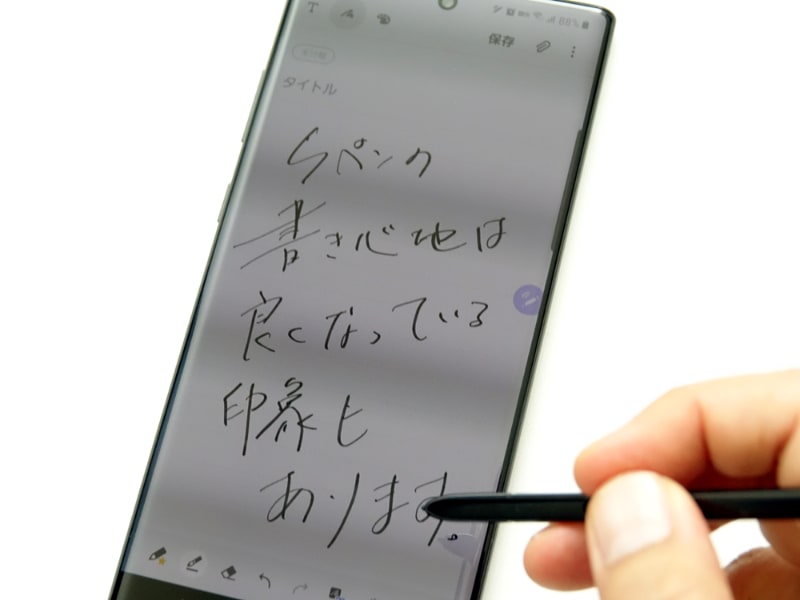 T
88%
保存
タイトル
Sペンの
書き心地は
良くなっている
印象も
あります。